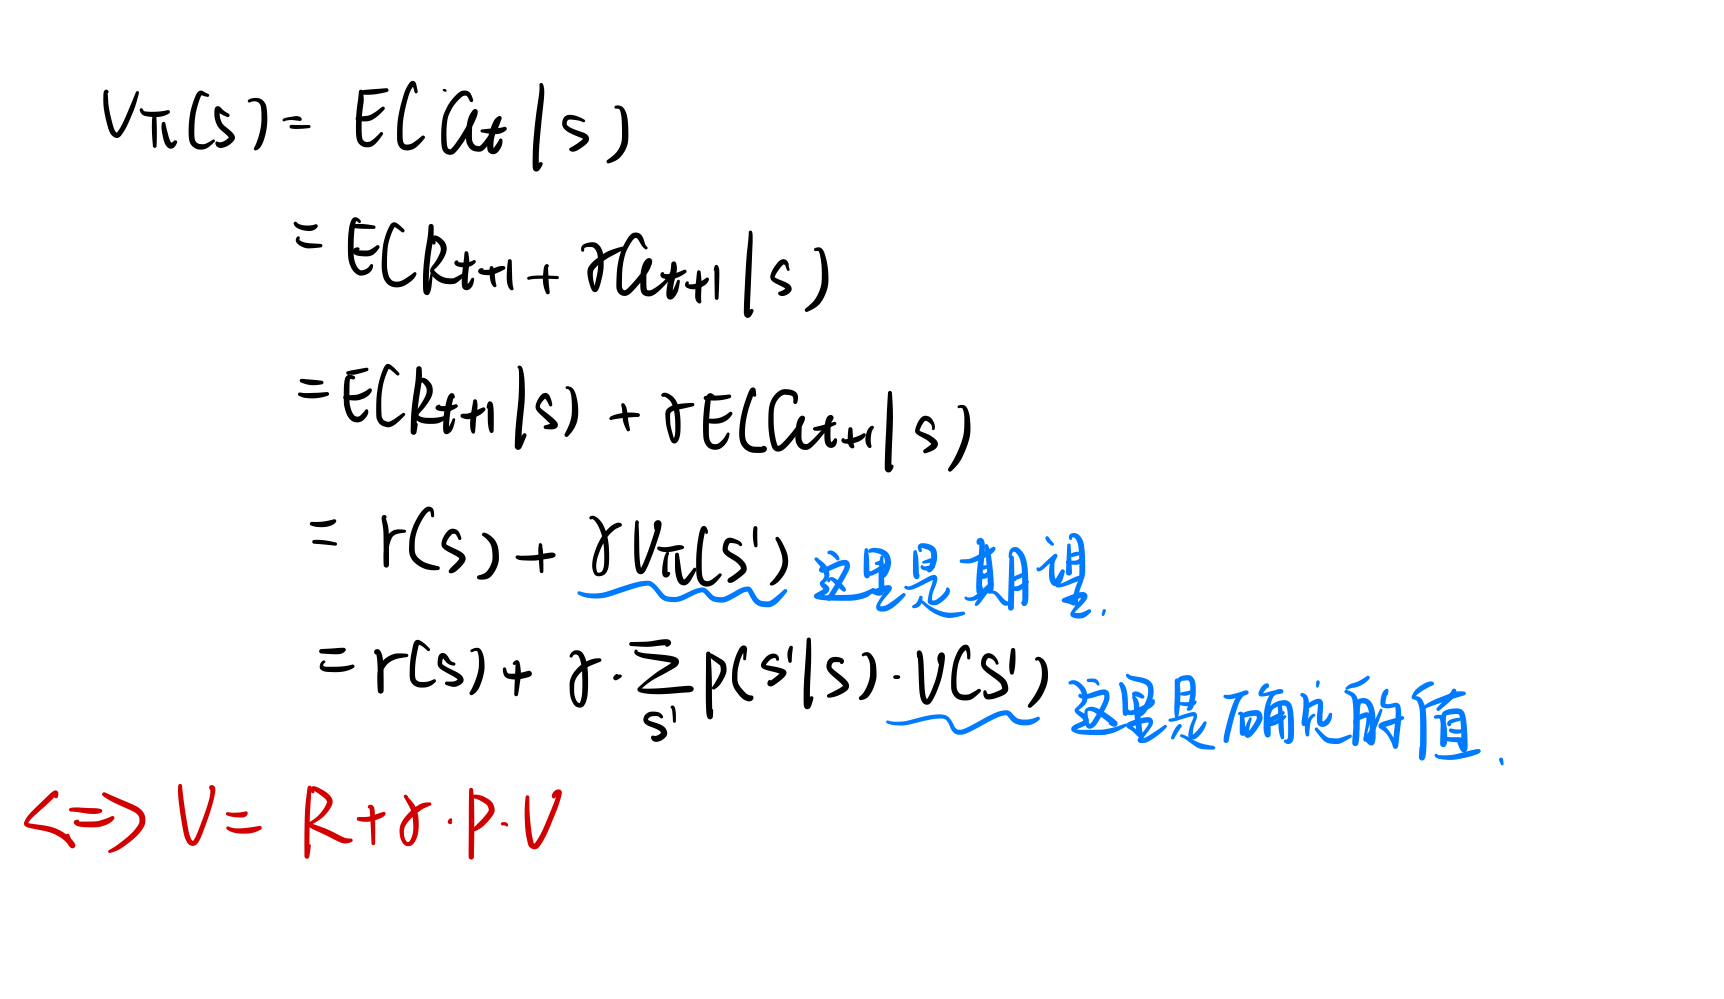 Vπ(s) = E(Gt | s)
= E(Rt+1 + γGt+1 | s)
= E(Rt+1 | s) + γE(Gt+1 | s)
= r(s) + γVπ(s') 这里是期望.
= r(s) + γ·∑s' p(s'|s)·V(s') 这里是确定的值.
<=> V = R + γ·P·V